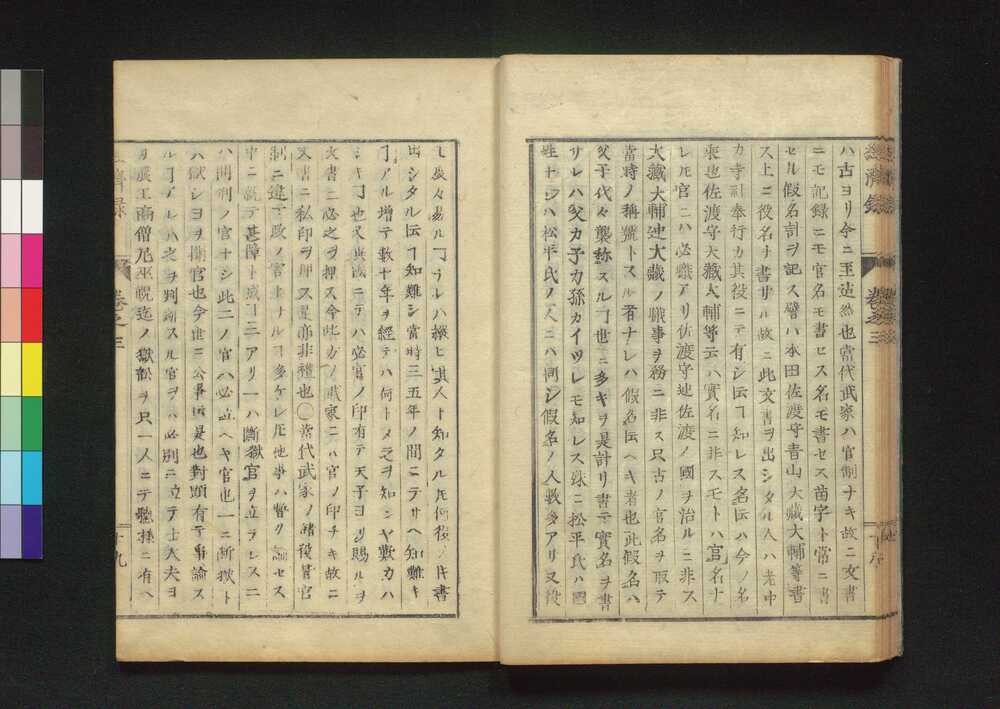 ハ古ヨリ今ニ至迠然也當代武家ハ官制ナキ故ニ文書
ニモ記録ニモ官名モ書セス名モ書セス苗字ト常ニ書
セル假名計ヲ記ス譬ハ本田佐渡守青山大藏大輔等書
ス上ニ役名ナ書サル故ニ此文書ヲ出シタル人ハ老中
カ寺社奉行カ其役ニテ有シ伝ヿ知レス名伝ハ今ノ名
乘也佐渡守大藏大輔等云ハ實名ニ非スモトハ官名ナ
レ𪜈官ニハ必職アリ佐渡守迚佐渡ノ國ヲ治ルニ非ス
大藏大輔迚大藏ノ職事ヲ務ニ非ス只古ノ官名ヲ取テ
當時ノ稱號トスル者ナレハ假名伝ヘキ者也此假名ハ
父子代々襲称スルヿ世ニ多キヲ是計リ書テ實名ヲ書
サレハ父カ子カ孫カイツレモ知レス殊ニ松平氏ハ國
姓ナレハ松平氏ノ人ニハ同シ假名ノ人數多アリ又役
濟録
卷之三
モ屡々易ルヿアレハ縱ヒ其人ト知タル𪜈何役ノ時書
出シタル伝ヿ知難シ當時三五年ノ間ニテサヘ知難キ
ヿアル増テ數十年ヲ經テハ何トメ之ヲ知ンヤ歎カハ
シキヿ也又異國ニテハ必官ノ印有テ天子ヨリ賜ルヲ
文書ニ必之ヲ押ス今此方ノ武家ニハ官ノ印ナキ故ニ
文書ニ私印ヲ用ス是亦非禮也〇當代武家ノ諸役皆官
制ニ違テ政ノ害トナルヿ多ケレ𪜈他事ハ暫ク論セス
中ニ就テ甚障ト成ヿ二アリ一ハ斷獄官ヲ立ラレス二
ハ開刑ノ官ナシ此二ノ官ハ必立ヘキ官也一ニ斷獄ト
ハ獄シヨヲ聞官也今世ニ公事伝是也對頭有テ事論ス
ルヿアレハ之ヲ判斷スル官ヲハ必別ニ立テ士大夫ヨ
リ農工商僧尼巫祝迠ノ獄訟ヲ只一人ニテ聽樣ニ有ヘ
濟録
卷之三
十九